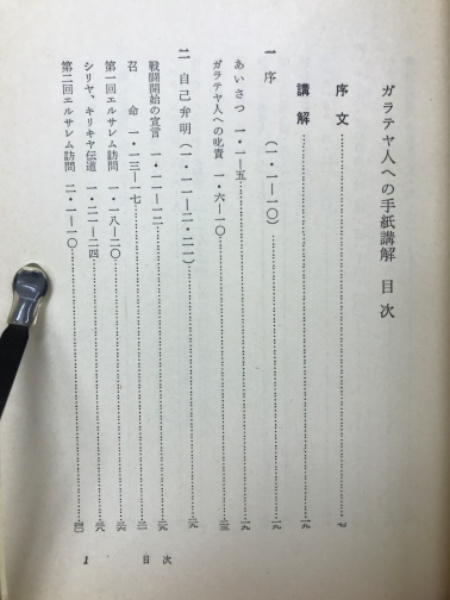 ガラテヤ人への手紙講解 目次
序文……七
講解……一九
一 序 (一・一—一〇)……一九
あいさつ 一・一—五……一九
ガラテヤ人への叱責 一・六—一〇……二三
二 自己弁明 (一・一一—二・二一)……二九
戦闘開始の宣言 一・一一—一二……二九
召命 一・一三—一七……三一
第一回エルサレム訪問 一・一八—二〇……三六
シリヤ、キリキヤ伝道 一・二一—二四……三八
第二回エルサレム訪問 二・一—一〇……四〇
1 目次